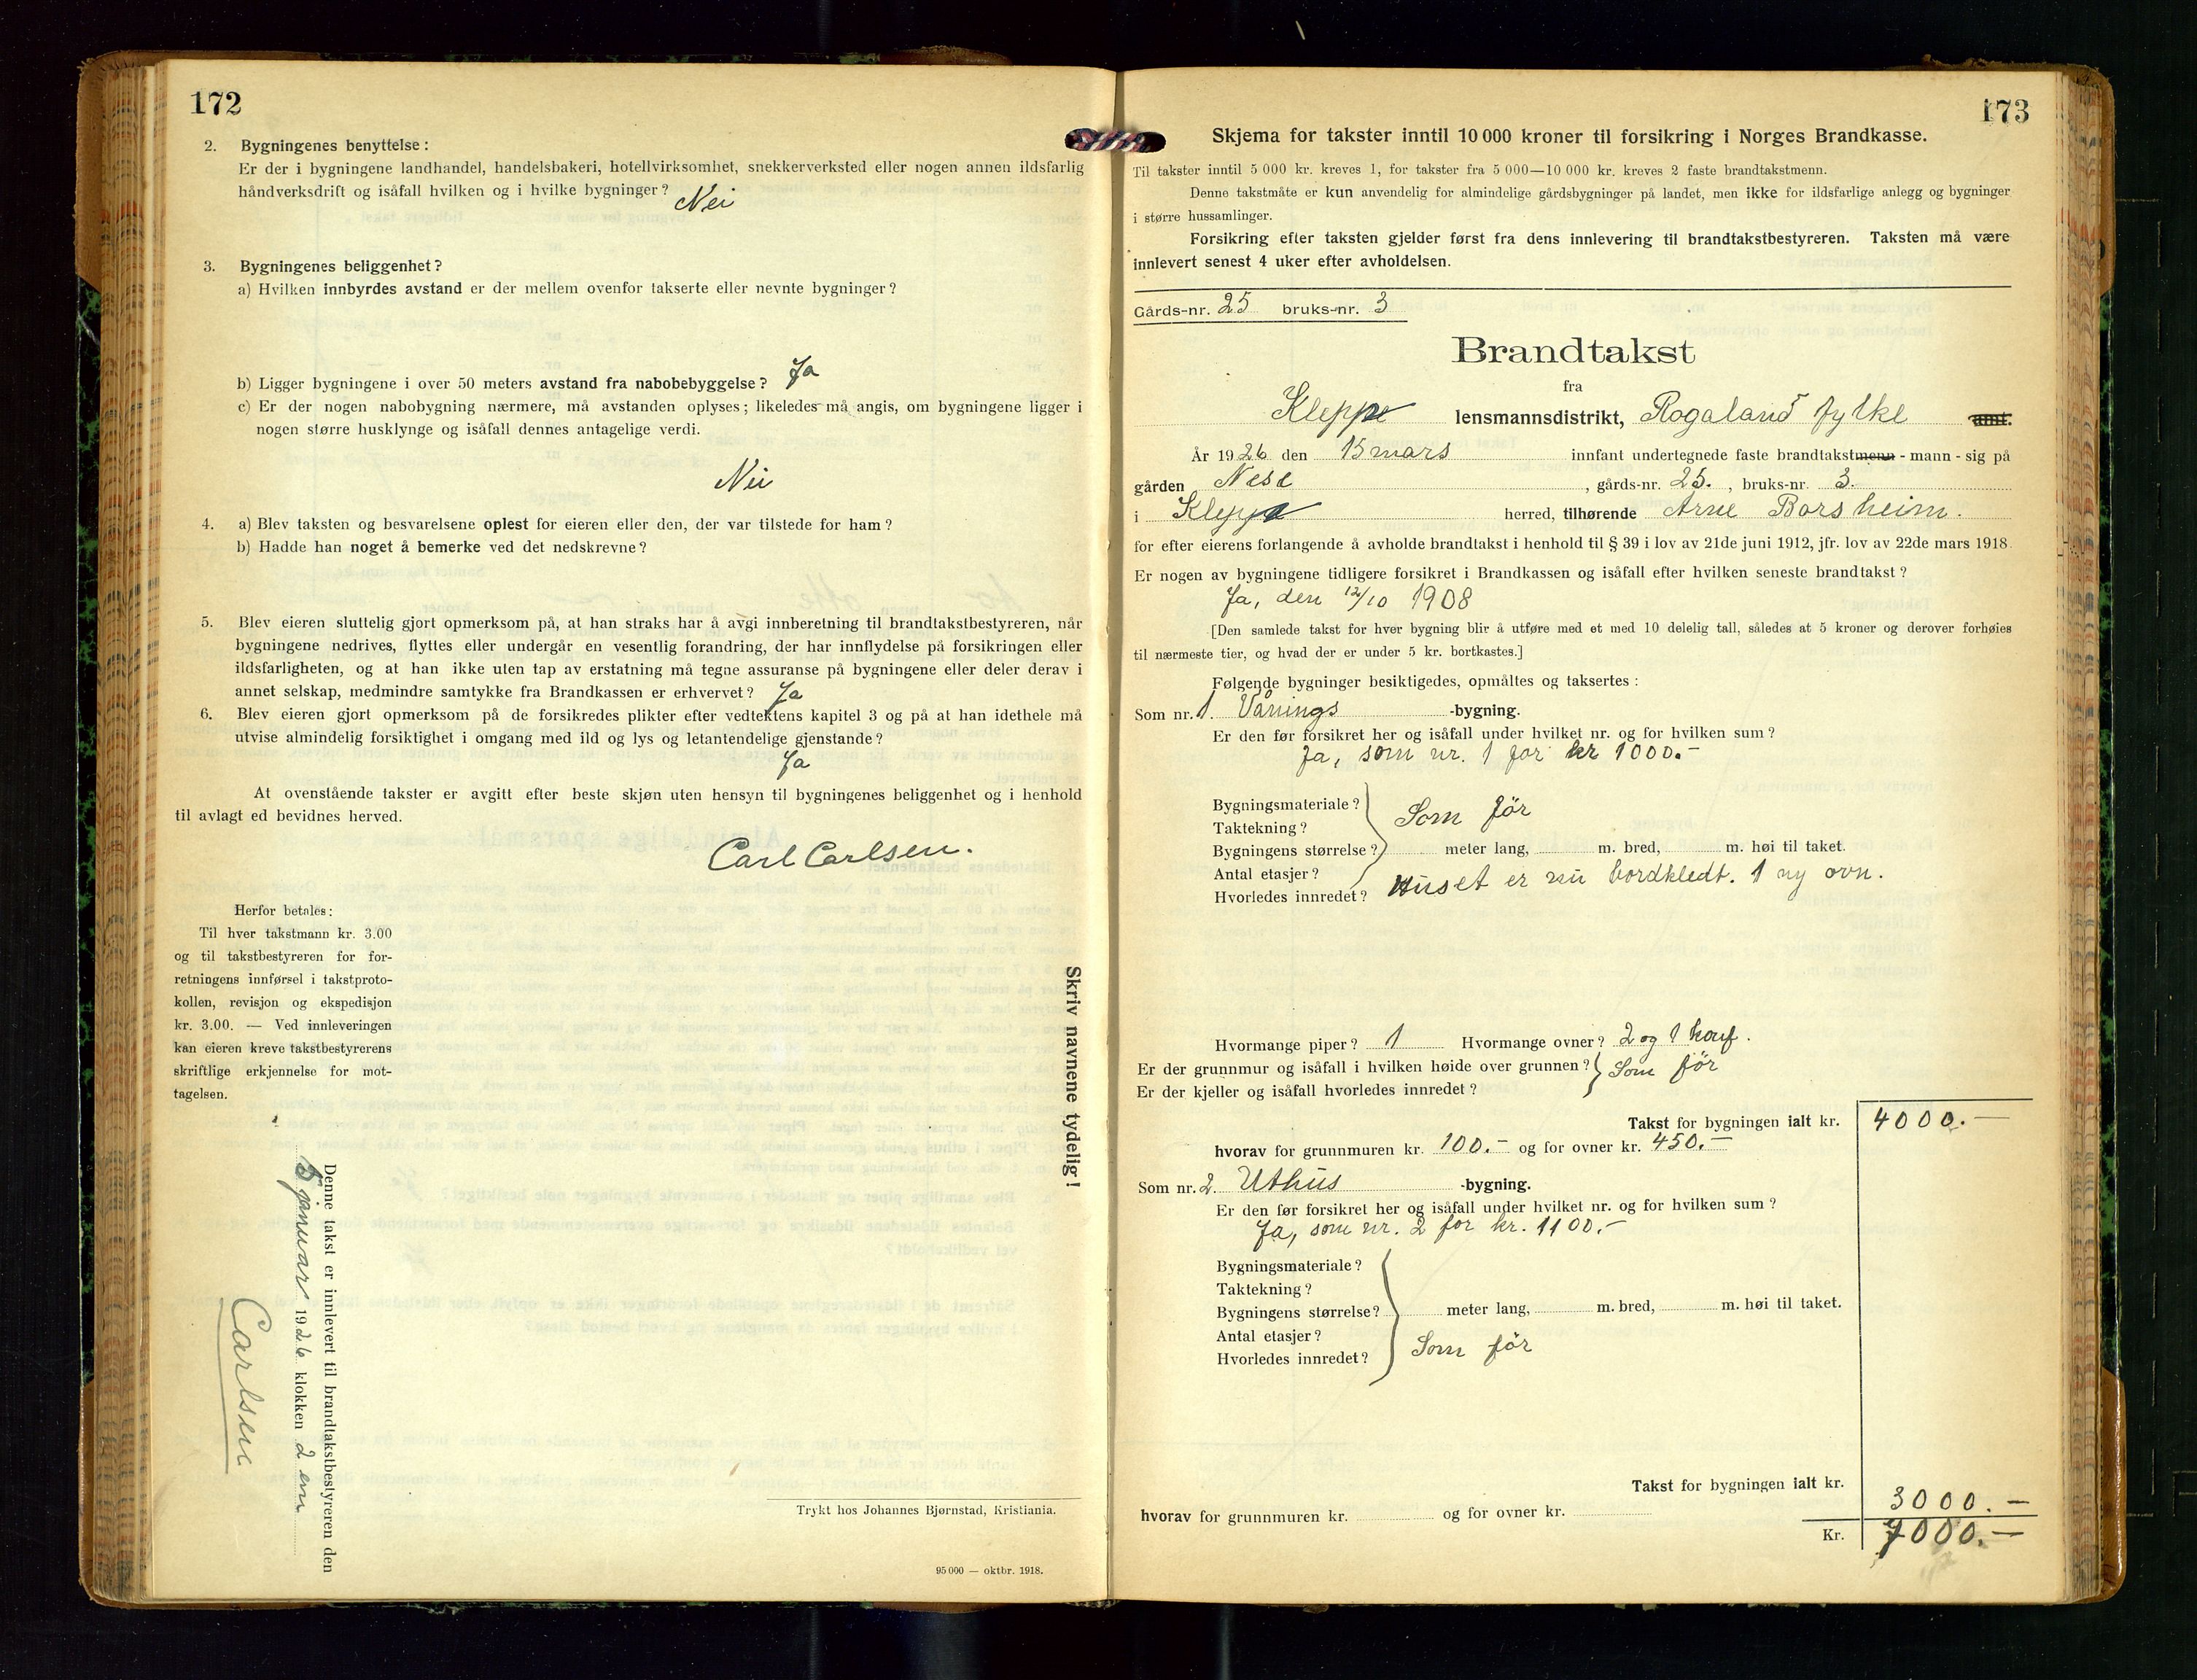 172
2. Bygningenes benyttelse:
Er der i bygningene landhandel, handelsbakeri, hotellvirksomhet, snekkerverksted eller nogen annen ildsfarlig
håndverksdrift og isåfall hvilken og i hvilke bygninger? Nei
3. Bygningenes beliggenhet?
a) Hvilken innbyrdes avstand er der mellem ovenfor takserte eller nevnte bygninger?
b) Ligger bygningene i over 50 meters avstand fra nabobebyggelse? Ja
c) Er der nogen nabobygning nærmere, må avstanden oplyses; likeledes må angis, om bygningene ligger i
nogen større husklynge og isåfall dennes antagelige verdi.
Nei
4. a) Blev taksten og besvarelsene oplest for eieren eller den, der var tilstede for ham?
b) Hadde han noget å bemerke ved det nedskrevne?
5. Blev eieren sluttelig gjort opmerksom på, at han straks har å avgi innberetning til brandtakstbestyreren, når
bygningene nedrives, flyttes eller undergår en vesentlig forandring, der har innflydelse på forsikringen eller
ildsfarligheten, og at han ikke uten tap av erstatning må tegne assuranse på bygningene eller deler derav i
annet selskap, medmindre samtykke fra Brandkassen er erhvervet? Ja
6. Blev eieren gjort opmerksom på de forsikredes plikter efter vedtektens kapitel 3 og på at han idethele må
utvise almindelig forsiktighet i omgang med ild og lys og letantendelige gjenstande?
Ja
At ovenstående takster er avgitt efter beste skjøn uten hensyn til bygningenes beliggenhet og i henhold
til avlagt ed bevidnes herved.
Carl Carlsen.
Herfor betales:
Til hver takstmann kr. 3.00
og til takstbestyreren for for-
retningens innførsel i takstproto-
kollen, revisjon og ekspedisjon
kr. 3.00. — Ved innleveringen
kan eieren kreve takstbestyrerens
skriftlige erkjennelse for mot-
tagelsen.
Skriv navnene tydelig!
Denne takst er innlevert til brandtakstbestyreren den
5 januar 1926 klokken 2 em
Carlsen
Trykt hos Johannes Bjørnstad, Kristiania.
95 000 — oktbr. 1918.
173
Skjema for takster inntil 10 000 kroner til forsikring i Norges Brandkasse.
Til takster inntil 5 000 kr. kreves 1, for takster fra 5 000—10 000 kr. kreves 2 faste brandtakstmenn.
Denne takstmåte er kun anvendelig for almindelige gårdsbygninger på landet, men ikke for ildsfarlige anlegg og bygninger
i større hussamlinger.
Forsikring efter taksten gjelder først fra dens innlevering til brandtakstbestyreren. Taksten må være
innlevert senest 4 uker efter avholdelsen.
Gårds-nr. 25 bruks-nr. 3
Brandtakst
fra
Kleppe lensmannsdistrikt, Rogaland fylke amt.
År 1926 den 15 mars innfant undertegnede faste brandtakstmenn - mann - sig på
gården Nese, gårds-nr. 25., bruks-nr. 3.
i Kleppe herred, tilhørende Arne Borsheim.
for efter eierens forlangende å avholde brandtakst i henhold til § 39 i lov av 21de juni 1912, jfr. lov av 22de mars 1918
Er nogen av bygningene tidligere forsikret i Brandkassen og isåfall efter hvilken seneste brandtakst?
Ja, den 12/10 1908
[Den samlede takst for hver bygning blir å utføre med et med 10 delelig tall, således at 5 kroner og derover forhøies
til nærmeste tier, og hvad der er under 5 kr. bortkastes.]
Følgende bygninger besiktigedes, opmåltes og taksertes:
Som nr. 1. Vånings -bygning.
Er den før forsikret her og isåfall under hvilket nr. og for hvilken sum?
Ja, som nr. 1 for kr 1000.-
Bygningsmateriale?
Taktekning? Som för
Bygningens størrelse? meter lang, m. bred, m. høi til taket.
Antal etasjer?
Hvorledes innredet? Huset er nu bordkledt. 1 ny ovn.
Hvormange piper? 1 Hvormange ovner? 2 og 1 komf.
Er der grunnmur og isåfall i hvilken høide over grunnen? Som för
Er der kjeller og isåfall hvorledes innredet?
Takst for bygningen ialt kr. 4000.-
hvorav for grunnmuren kr. 100.- og for ovner kr. 450.-
Som nr. 2. Uthus -bygning.
Er den før forsikret her og isåfall under hvilket nr. og for hvilken sum?
Ja, som nr. 2 for kr. 1100.-
Bygningsmateriale?
Taktekning?
Bygningens størrelse? meter lang, m. bred, m. høi til taket.
Antal etasjer?
Hvorledes innredet? Som för
Takst for bygningen ialt kr. 3000.-
hvorav for grunnmuren kr. og for ovner kr.
Kr. 7000.-